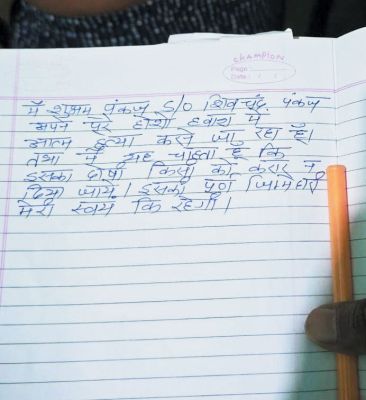 CHAMPION
Page
Date : / /
मैं शुभम पंकज S/O शिवचंद्र पंकज
अपने पूरे होशो हवास में
आत्म हत्या करने जा रहा हूँ।
तथा मैं यह चाहता हूँ कि
इसका दोषी किसी को करार न
दिया जाये। इसका पूर्ण जिम्मेदारी
मेरा स्वयं कि रहेगी।